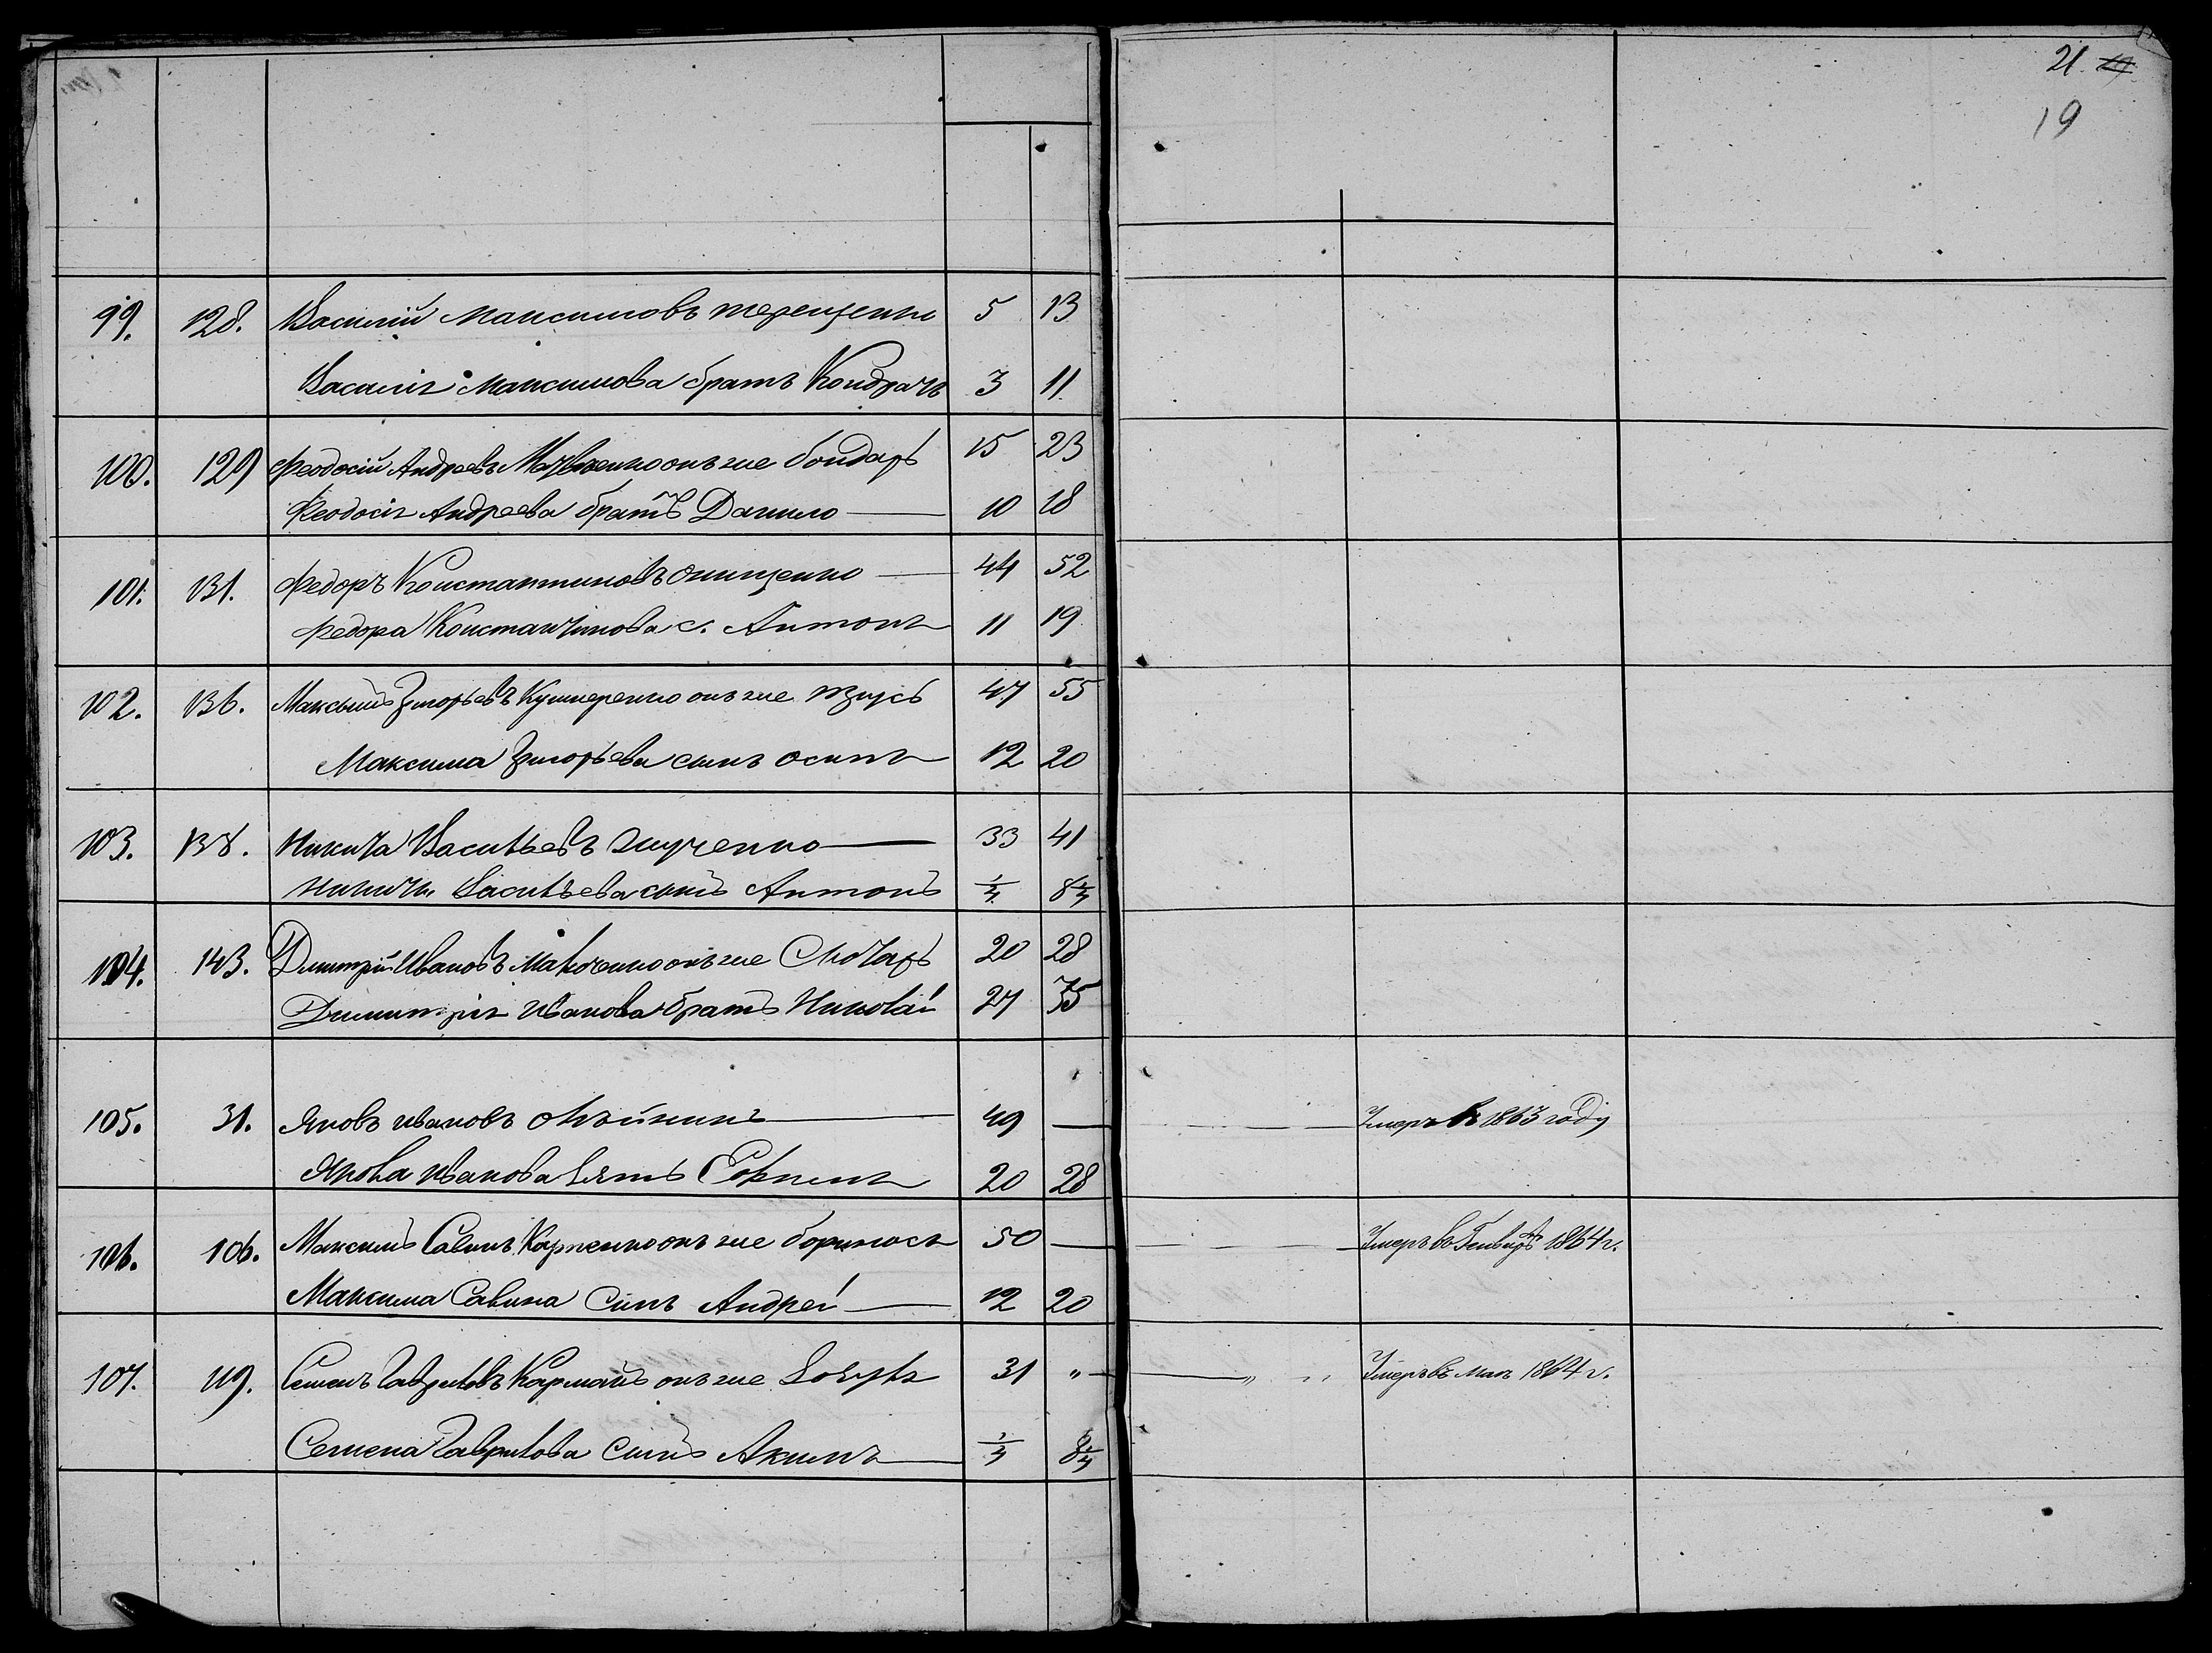 21. 19
19
99. 128. Василій Максимовъ терещенко 5 13
Василія Максимова братъ Кондратъ 3 11
100. 129 Феодосій Андреевъ онъ же бондарь 15 23
Феодосія Андреева братъ Данило — 10 18
101. 131. Федоръ Константиновъ Онищенко — 44 52
Федора Константинова с. Антонъ 11 19
102. 136. Максимъ Григорьевъ Кушнеренко онъ же 47 55
Максима Григорьева сынъ осипъ 12 20
103. 138. Никита Васильевъ — 33 41
Никиты Васильева сынъ Антонъ 1/4 8 1/4
104. 143. Дмитрій Ивановъ онъ же Слюсарь 20 28
Димитрія Иванова братъ Николай 27 35
105. 31. Яковъ ивановъ Олейникъ — 49 — Умеръ въ 1863 году
Якова иванова зять 20 28
106. 106. Максимъ Савинъ Карпенко онъ же 50 — Умеръ въ Генварѣ 1864 г.
Максима Савина Синъ Андрей — 12 20
107. 119. Семенъ Гавриловъ онъ же 31 „ — „ Умеръ въ маѣ 1864 г.
Семена Гаврилова Синъ Акимъ — 1/4 8 1/4